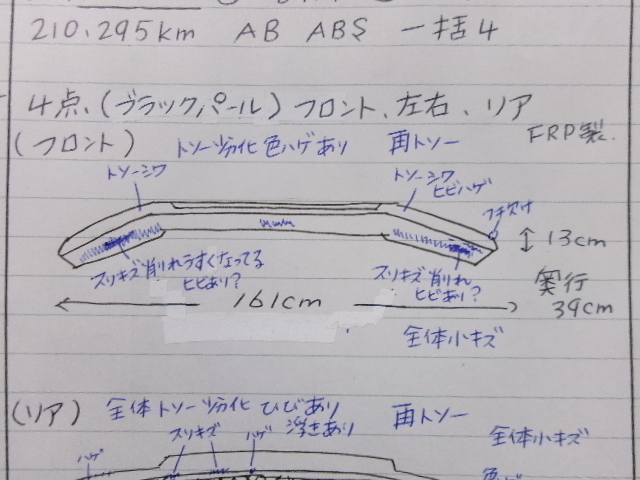 210.295km AB ABS 一括4
4点、(ブラックパール)フロント、左右、リア
(フロント) トソー劣化 色ハゲあり 再トソー FRP製.
トソーシワ
トソーシワ
ヒビハゲ
フチ欠け
13cm
スリキズ削れうすくなってる
ヒビあり?
スリキズ削れ
ヒビあり?
奥行
39cm
161cm
全体小キズ
(リア) 全体トソー劣化 ひびあり 再トソー
浮きあり
全体小キズ
スリキズ
ハゲ
ハゲ